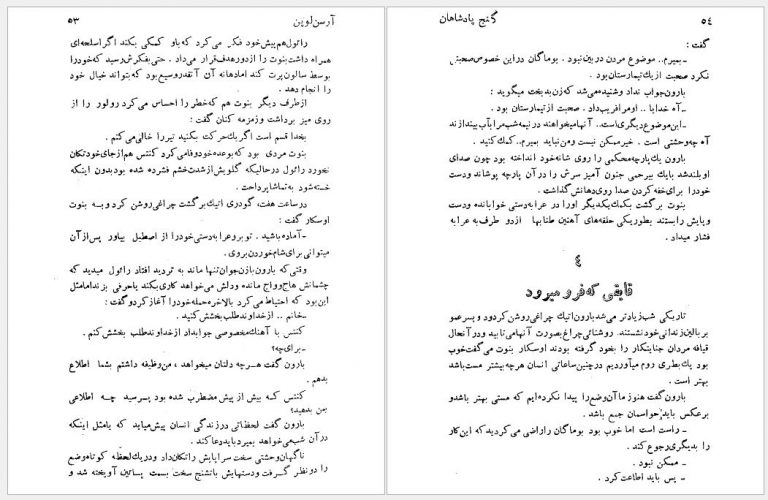 آرسن‌لوپن ۵۳
رائول هم پیش خود فکر می کرد که باو کمکی بکند اگر اسلحه‌ای
همراه داشت بنوت را از دور هدف قرار می‌داد . حتی بفکرش رسید که خود را
بوسط سالون پرت کند اما دهانه آن آنقدر وسیع بود که بتواند خیال خود
را انجام دهد .
از طرف دیگر بنوت هم که خطر را احساس می کرد رولور را از
روی میز برداشت و زمزمه کنان گفت :
بخدا قسم است اگر یک حرکت بکنید تیر را خالی می کنم .
بنوت مردی بود که بوعده خود وفا می کرد کنتس هم از جای خود تکان
نخورد رائول در حالیکه گلویش از شدت خشم فشرده شده بود بدون اینکه
خسته شود به تماشا پرداخت .
در ساعت هفت، گودری اتیک برگشت چراغی روشن کرد و به بنوت
اوسکار گفت :
ـ آماده باشید . تو برو عرابه دستی خود را از اصطبل بیاور پس از آن
میتوانی برای شام خوردن بروی .
وقتی که بارون با زن جوان تنها ماند به تردید افتاد رائول میدید که
چشمانش هاج و واج مانده و دلش می خواهد کاری بکند یا حرفی بزند اما مثل
این بود که احتیاط می کرد بالاخره حمله خود را آغاز کرد و گفت :
ـ خانم .. از خداوند طلب بخشش کنید .
کنتس با آهنگ مخصوصی جواب داد از خداوند طلب بخشش کنم .
ـ برای چه؟
بارون گفت هرچه دلتان میخواهد ، من وظیفه داشتم بشما اطلاع
بدهم .
کنتس که بیش از پیش مضطرب شده بود پرسید چه اطلاعی
بمن بدهید؟
بارون گفت لحظاتی در زندگی انسان پیش میاید که بامثل اینکه
در آن شب می خواهد بمیرد باید دعا کند .
ناگهان وحشتی سخت سراپایش را تکان داد و در یک لحظه کوتاه وضع
را در نظر گرفت و دستهایش با تشنج سخت بسمت پستانین آویخته شد و
گنج پادشاهان ۵۴
گفت :
ـ بمیرم.. موضوع مردن در بین نبود . بوماگان در این خصوص صحبتی
نکرد صحبت از یک تیمارستان بود .
بارون جواب نداد و شنیده می‌شد که زن بدبخت میگوید :
ـ آه خدایا .. او مرا فریب داد . صحبت از تیمارستان بود .
ـ این موضوع دیگری است.. آنها میخواهند در نیمه شب مرا بآب بیندازند
آه چه وحشتی است . خیر ممکن نیست و من نباید بمیرم.. کمک کنید .
بارون یک پارچه محکمی را روی شانه خود انداخته بود چون صدای
او بلند شد با یک بیرحمی جنون آمیز سرش را در آن پارچه پوشاند و دست
خود را برای خفه کردن صدا روی دهانش گذاشت .
بنوت برگشت بکمک یکدیگر او را در عرابه دستی خوابانده و دست
و پایش را بستند بطوریکی حلقه‌های آهنین طنابها از دو طرف به عرابه
فشار میداد .
۴
قایقی که فرو میرود
تاریکی شب زیادتر می شد بارون اتیک چراغی روشن کرد و دو پسر عمو
بر بالین زندانی خود نشستند. روشنائی چراغ بصورت آنها می تابید و در آنحال
قیافه مردان جنایتکار را بخود گرفته بودند اوسکار بنوت می گفت خوب
بود یک بطری روم میآوردیم در چنین ساعاتی انسان هرچه بیشتر مست باشد
بهتر است .
بارون گفت هنوز ما آن وضع را پیدا نکرده‌ایم که مستی بهتر باشد و
برعکس باید حواسمان جمع باشد .
ـ راست است اما خوب بود بوماگان را راضی می کردید که این کار
را بدیگری رجوع کند .
ـ ممکن نبود .
ـ پس باید اطاعت کرد .